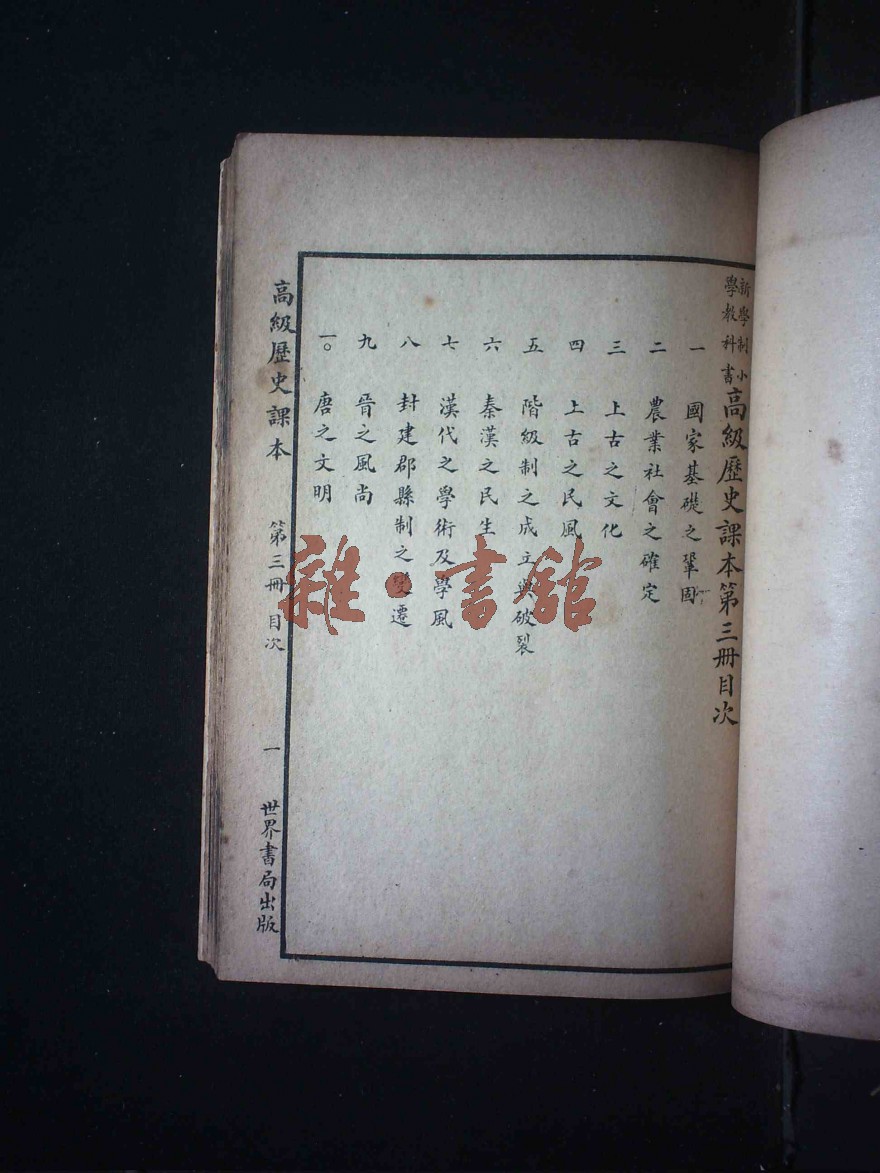 新學制小學教科書高級歷史課本第三冊目次
一 國家基礎之鞏固
二 農業社會之確定
三 上古之文化
四 上古之民風
五 階級制之成立與破裂
六 秦漢之民生
七 漢代之學術及學風
八 封建郡縣制之變遷
九 晉之風尚
一〇 唐之文明
高級歷史課本 第三冊 目次 一 世界書局出版
雜·書館